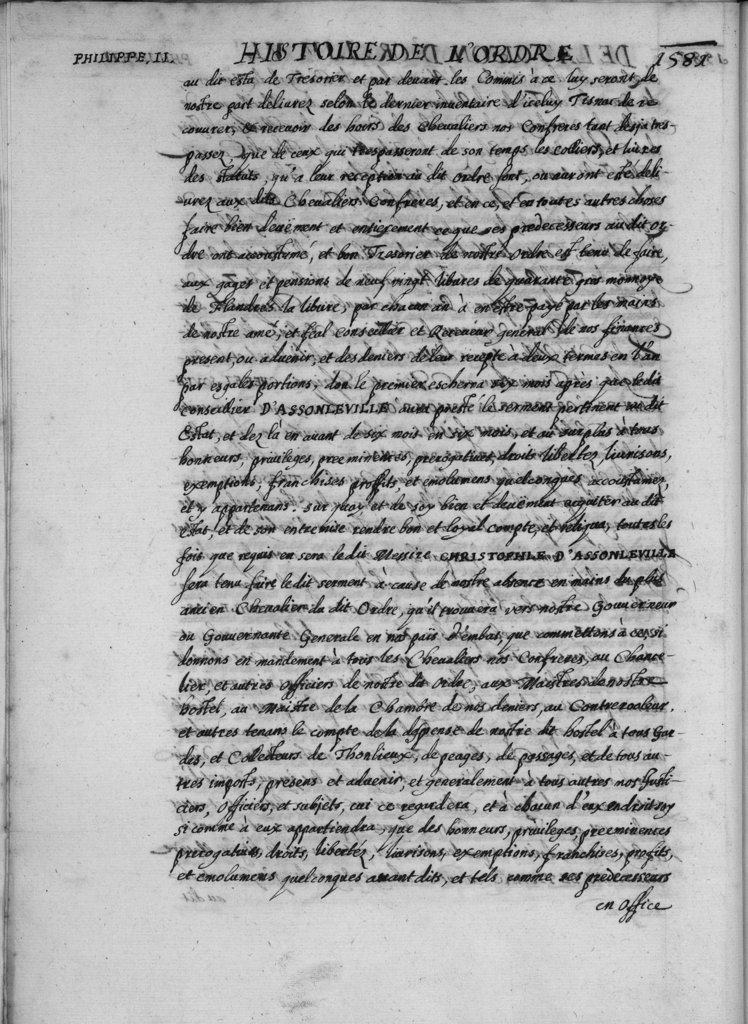 PHILIPPE, II. HISTOIRE DE L'ORDRE 1581
au dit esta de Tresorier et par devant les Commis a ce luy seront, de
nostre part delivrez selon le dernier inventaire d'iceluy Tisnac de re
couurer, & receuoir des hoirs des Chevaliers nos Confreres tant desja tres-
passez, que de ceux qui trespasseront de son temps les colliers, et liures
des statuts, qu'a leur reception au dit ordre sont, ou auront esté deli-
urez aux dits Chevaliers Confreres, et en ce, et en toutes autres choses
faire bien deuëment et entierement ce que ses predecesseurs au dit or-
dre ont accoustumé, et bon Tresorier de nostre Ordre est tenu de faire,
aux gages et pensions de neuf vingt liures de quarante gros monnoye
de Flandres la liure, par chacun an à en estre payé par les mains
de nostre amé, et féal conseillier et Receueur general de nos finances
present, ou aduenir, et des deniers de leur recepte à deux termes en l'an
par esgales portions, don le premier escherra six mois apres que ledit
conseillier D'ASSONLEVILLE aura presté le serment pertinent au dit
Estat, et dez là en auant de six mois en six mois, et au surplus à tous
honneurs, priuileges, preeminences, prerogatiues, droits libertez, liurisons,
exemptions, franchises proffits et emolumens quelconques accoustumez,
et y appartenans. sur quoy et de soy bien et deuëment acquiter au dit
estat, et de son entremise rendre bon et loyal compte, et reliqua, toutes les
fois que requis en sera ledit Messire CHRISTOPHLE D'ASSONLEVILLE
sera tenu faire ledit serment, à cause de nostre absence en mains du plus
ancien Chevalier du dit Ordre, qu'il trouuera vers nostre Gouuerneur
ou Gouuernante Generale en nos païs d'embas, que commettons à ce, si
donnons en mandement à tous les Chevaliers nos Confreres, au Chance-
lier, et autres Officiers de nostre dit Ordre, aux Maistres de nostre
hostel, au Maistre de la Chambre de nos deniers, au Contreroleur,
et autres tenans le compte de la dispense de nostre dit hostel à tous Gar
des, et Collecteurs de Thonlieux, de peages, de passages, et de tous au-
tres imposts, presens et aduenir, et generalement à tous autres nos Justi-
ciers, Officiers, et subjets, cui ce regardera, et à chacun d'eux endroit soy
si comme à eux appartiendra, que des honneurs, priuileges, preeminences
prerogatiues, droits, libertez, liurisons, exemptions, franchises, profits,
et emolumens quelconques auant dits, et tels comme ses predecesseurs
en office